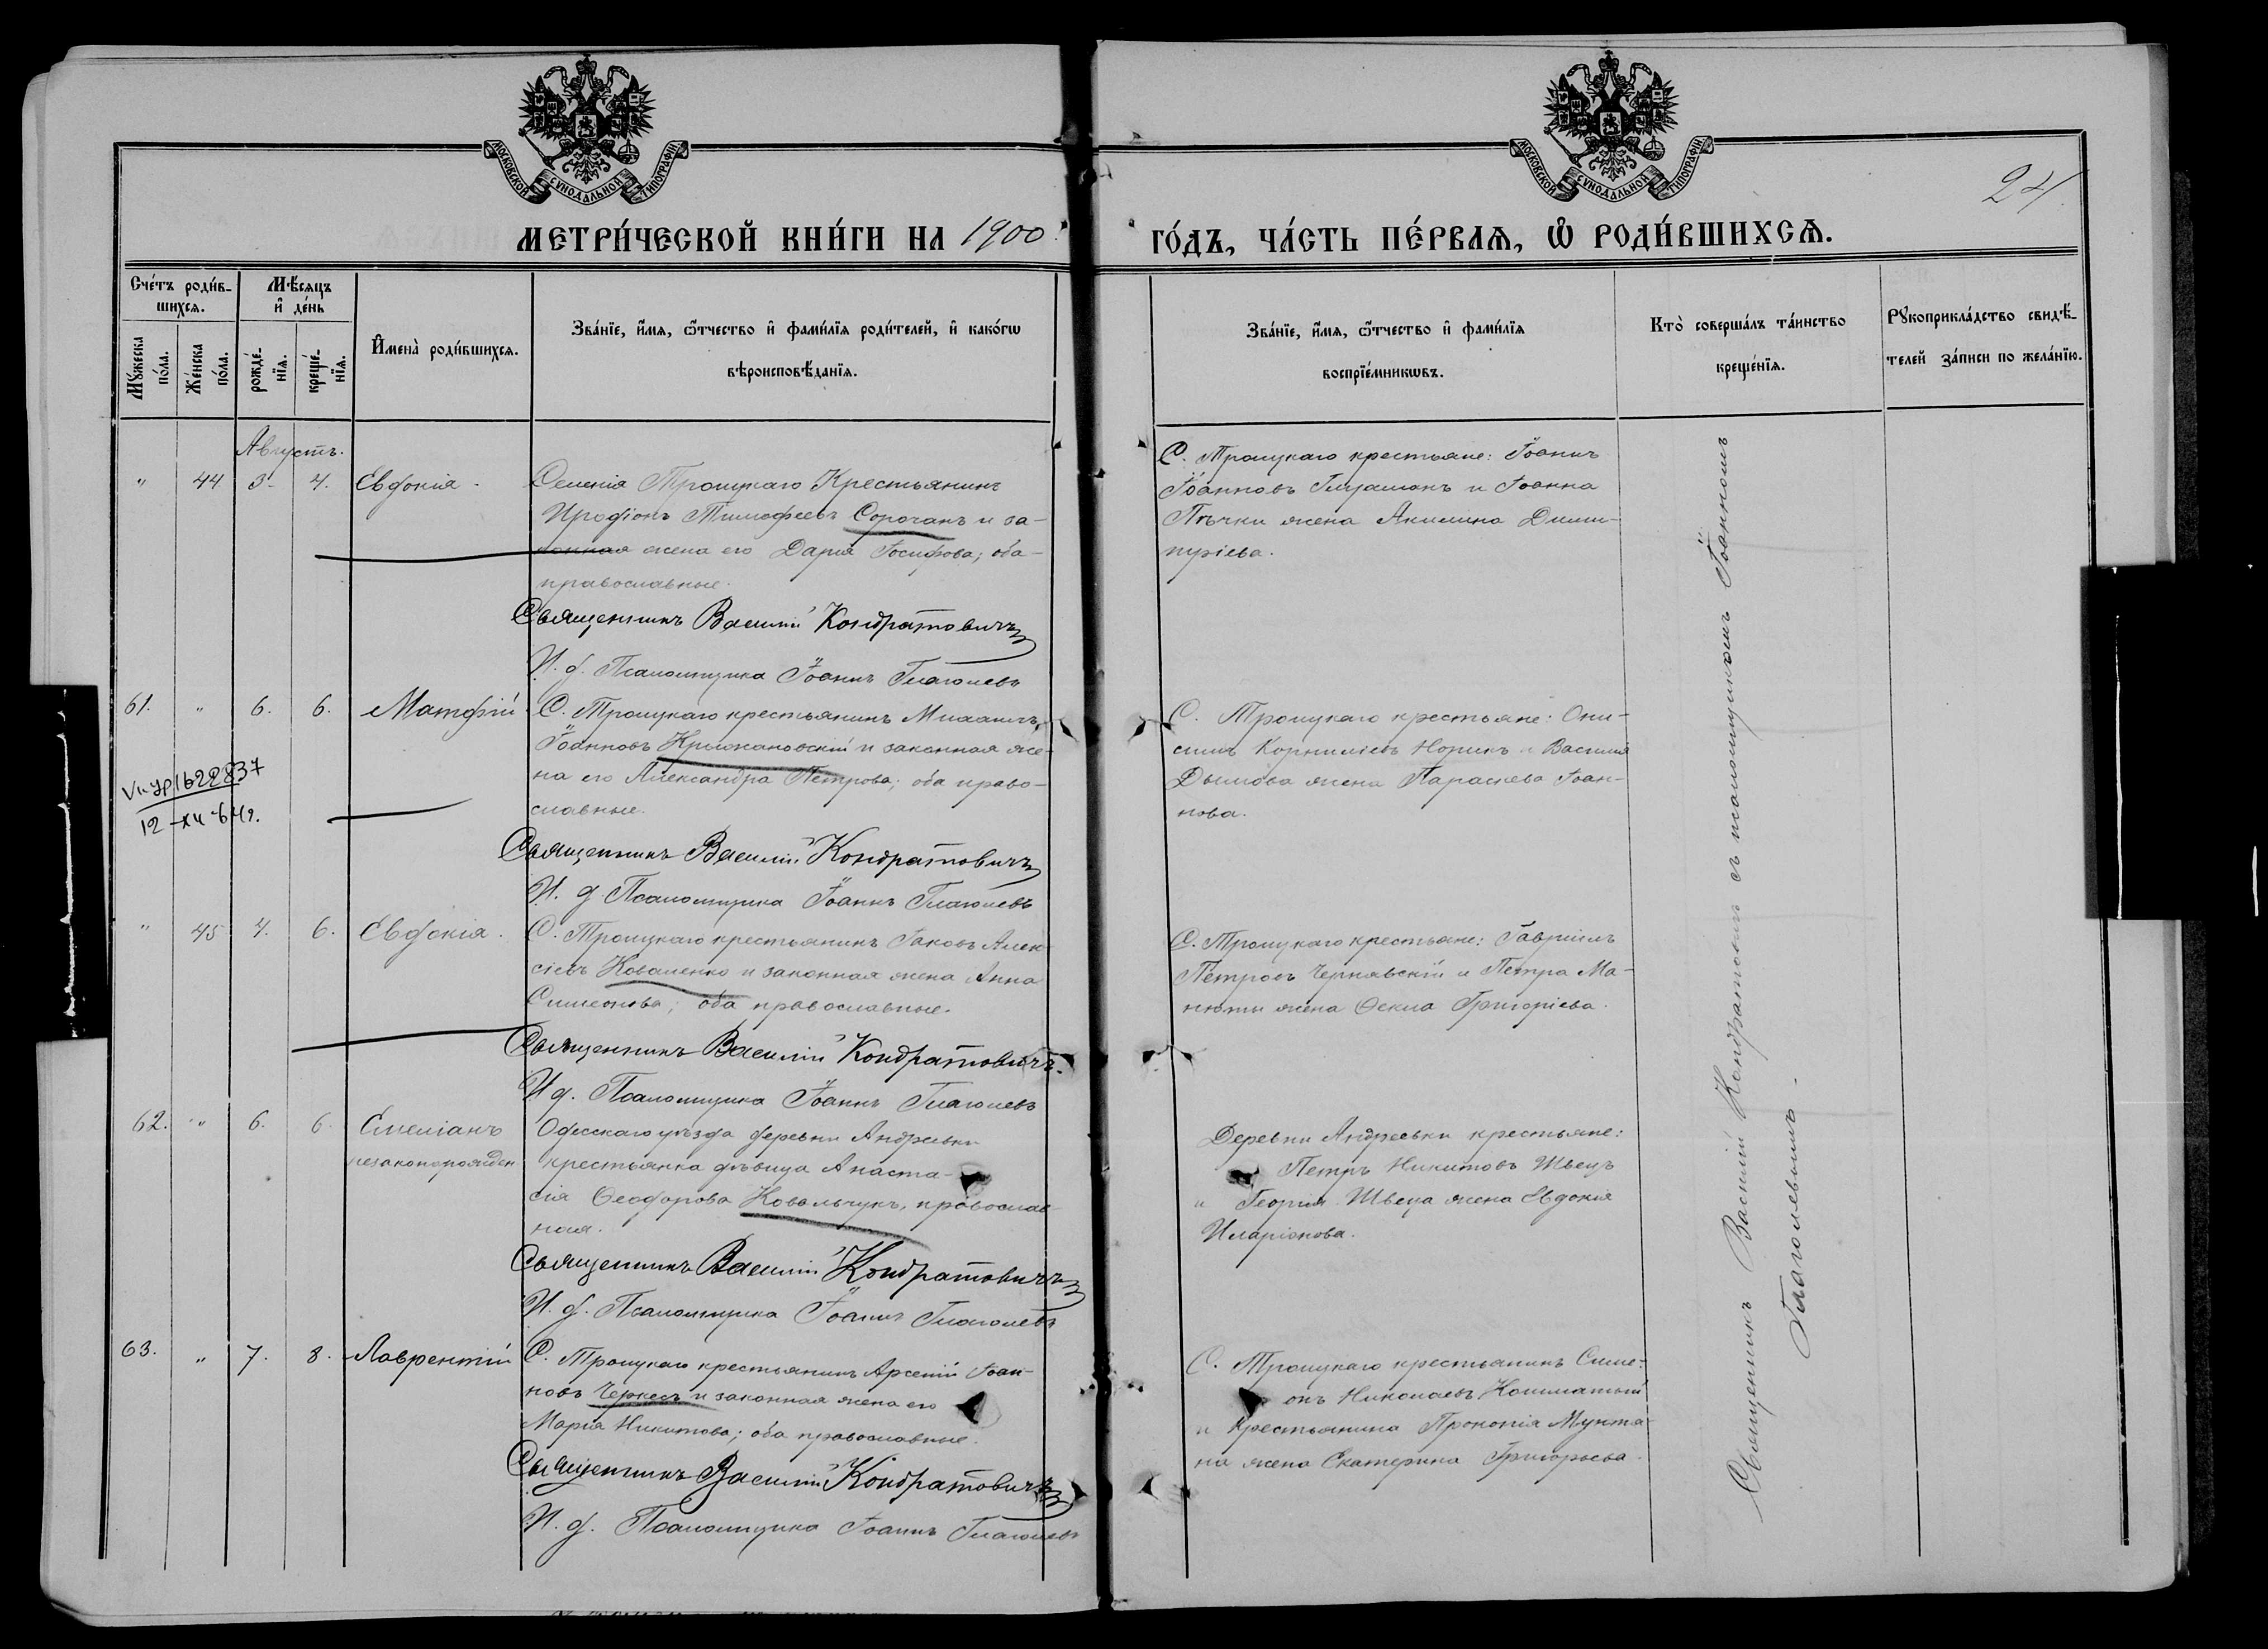 МОСКОВСКОЙ СѴНОДАЛЬНОЙ ТИПОГРАФІИ
МЕТРИ́ЧЕСКОЙ КНИ́ГИ НА 1900
Сче́тъ роди́в-
шихсѧ.
Мѣ́сѧцъ
и҆ де́нь
Мꙋ́жеска
по́ла.
Же́нска
по́ла.
рожде́-
нїѧ.
креще́-
нїѧ.
И҆мена̀ роди́вшихсѧ.
Зва́нїе, и҆́мѧ, ѻ҆́тчество и҆ фами́лїѧ роди́телей, и҆ како́гѡ
вѣроисповѣ́данїѧ.
Августъ.
" 44 3. 4. Евдокія.
Селенія Троицкаго Крестьянинъ
Иродіонъ Тимофеевъ Сорочанъ и за-
конная жена его Дарія Іосифова; оба
православные.
Священникъ Василій Кондратовичъ
И. д. Псаломщика Іоаннъ Глаголевъ
61. " 6. 6. Матфій
С. Троицкаго крестьянинъ Михаилъ
Іоанновъ Крыжановскій и законная же-
на его Александра Петрова; оба право-
славные.
12-XII-64г.
Священникъ Василій Кондратовичъ
И. д. Псаломщика Іоаннъ Глаголевъ
" 45 4. 6. Евдокія.
С. Троицкаго крестьянинъ Іаковъ Алек-
сіевъ Коваленко и законная жена Анна
Симеонова; оба православные.
Священникъ Василій Кондратовичъ.
И д. Псаломщика Іоаннъ Глаголевъ
62. " 6. 6 Емеліанъ
незаконорожден
Одесскаго уѣзда деревни Андреевки
крестьянка дѣвица Анаста-
сія Ѳеодорова Ковальчукъ, православ-
ная.
Священникъ Василій Кондратовичъ
И. д. Псаломщика Іоаннъ Глаголевъ
63. " 7. 8. Лаврентій
С. Троицкаго крестьянинъ Арсеній Іоан-
новъ Черкесъ и законная жена его
Марія Никитова; оба православные.
Священникъ Василій Кондратовичъ
И. д. Псаломщика Іоаннъ Глаголевъ
МОСКОВСКОЙ СѴНОДАЛЬНОЙ ТИПОГРАФІИ
24
ГО́ДЪ, ЧА́СТЬ ПЕ́РВАѦ, Ѡ҆ РОДИ́ВШИХСѦ.
Зва́нїе, и҆́мѧ, ѻ҆́тчество и҆ фами́лїѧ
воспрїе́мникѡвъ.
Кто̀ соверша́лъ та́инство
креще́нїѧ.
Рꙋкоприкла́дство свидѣ́-
телей за́писи по жела́нїю.
С. Троицкаго крестьяне: Іоаннъ
Іоанновъ и Іоанна
Пѣчки жена Акилина Дими-
тріева.
С. Троицкаго крестьяне: Они-
симъ Корниліевъ Норикъ и Василія
Дымова жена Параскева Іоан-
нова.
С. Троицкаго крестьяне: Гавріилъ
Петровъ Чернявскій и Петра Ма-
нюты жена Ѳекла Григоріева.
Деревни Андреевки крестьяне:
Петръ Никитовъ Швецъ
и Георгія Швеца жена Евдокія
Иларіонова.
С. Троицкаго крестьянинъ Симе-
онъ Николаевъ
и крестьянина Прокопія Мунтя-
на жена Екатерина Григорьева.
Священникъ Василій Кондратовичъ съ псаломщикомъ Іоанномъ
Глаголевымъ.